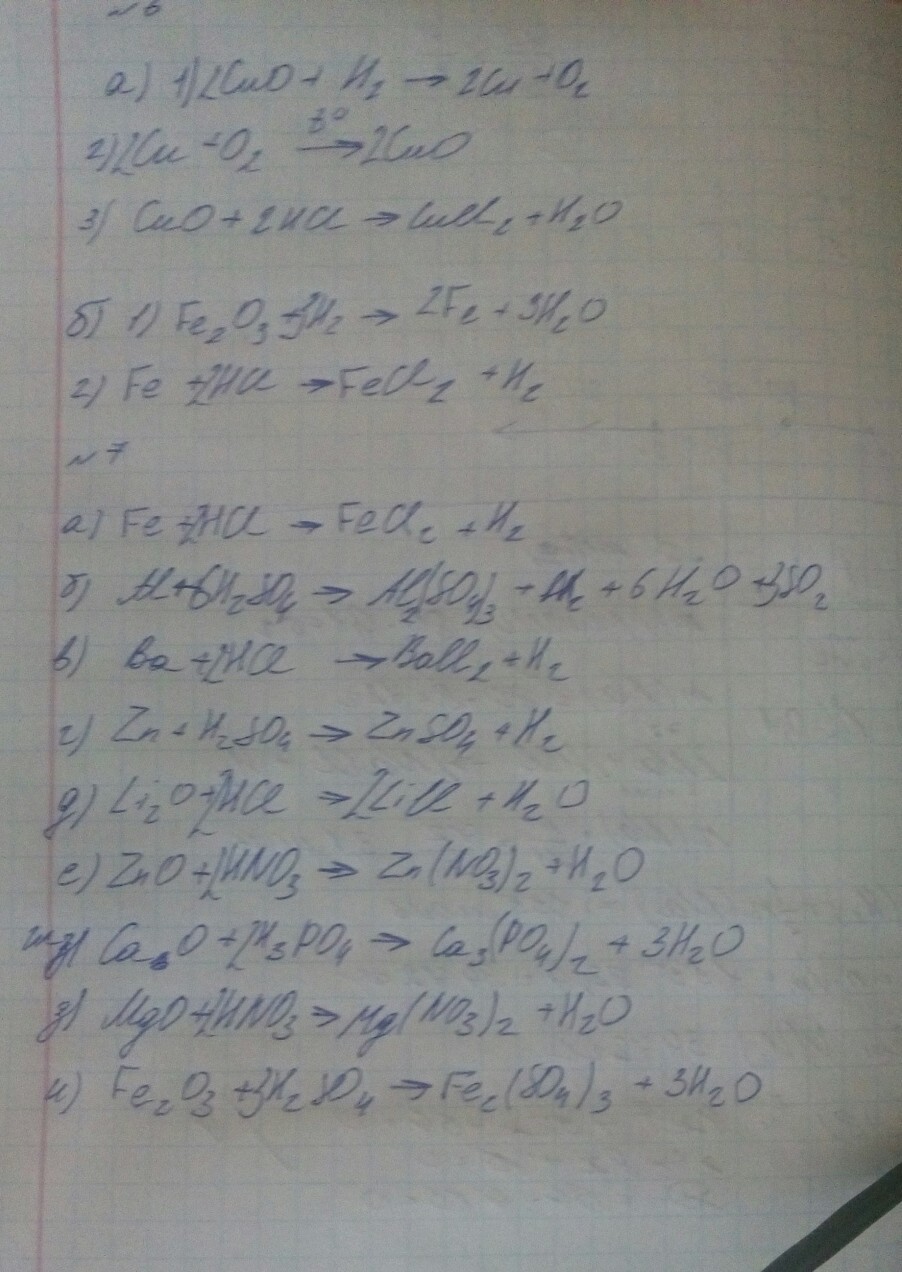 № 6
а) 1) 2CuO + H₂ → 2Cu + O₂
2) 2Cu + O₂ t° → 2CuO
3) CuO + 2HCl → CuCl₂ + H₂O
б) 1) Fe₂O₃ + 3H₂ → 2Fe + 3H₂O
2) Fe + 2HCl → FeCl₂ + H₂
№ 7
а) Fe + 2HCl → FeCl₂ + H₂
б) Al + 6H₂SO₄ → Al₂(SO₄)₃ + 6H₂O + 3SO₂
в) Ba + 2HCl → BaCl₂ + H₂
г) Zn + H₂SO₄ → ZnSO₄ + H₂
д) Li₂O + 2HCl → 2LiCl + H₂O
е) ZnO + 2HNO₃ → Zn(NO₃)₂ + H₂O
CaO + 2H₃PO₄ → Ca₃(PO₄)₂ + 3H₂O
з) MgO + 2HNO₃ → Mg(NO₃)₂ + H₂O
и) Fe₂O₃ + 3H₂SO₄ → Fe₂(SO₄)₃ + 3H₂O